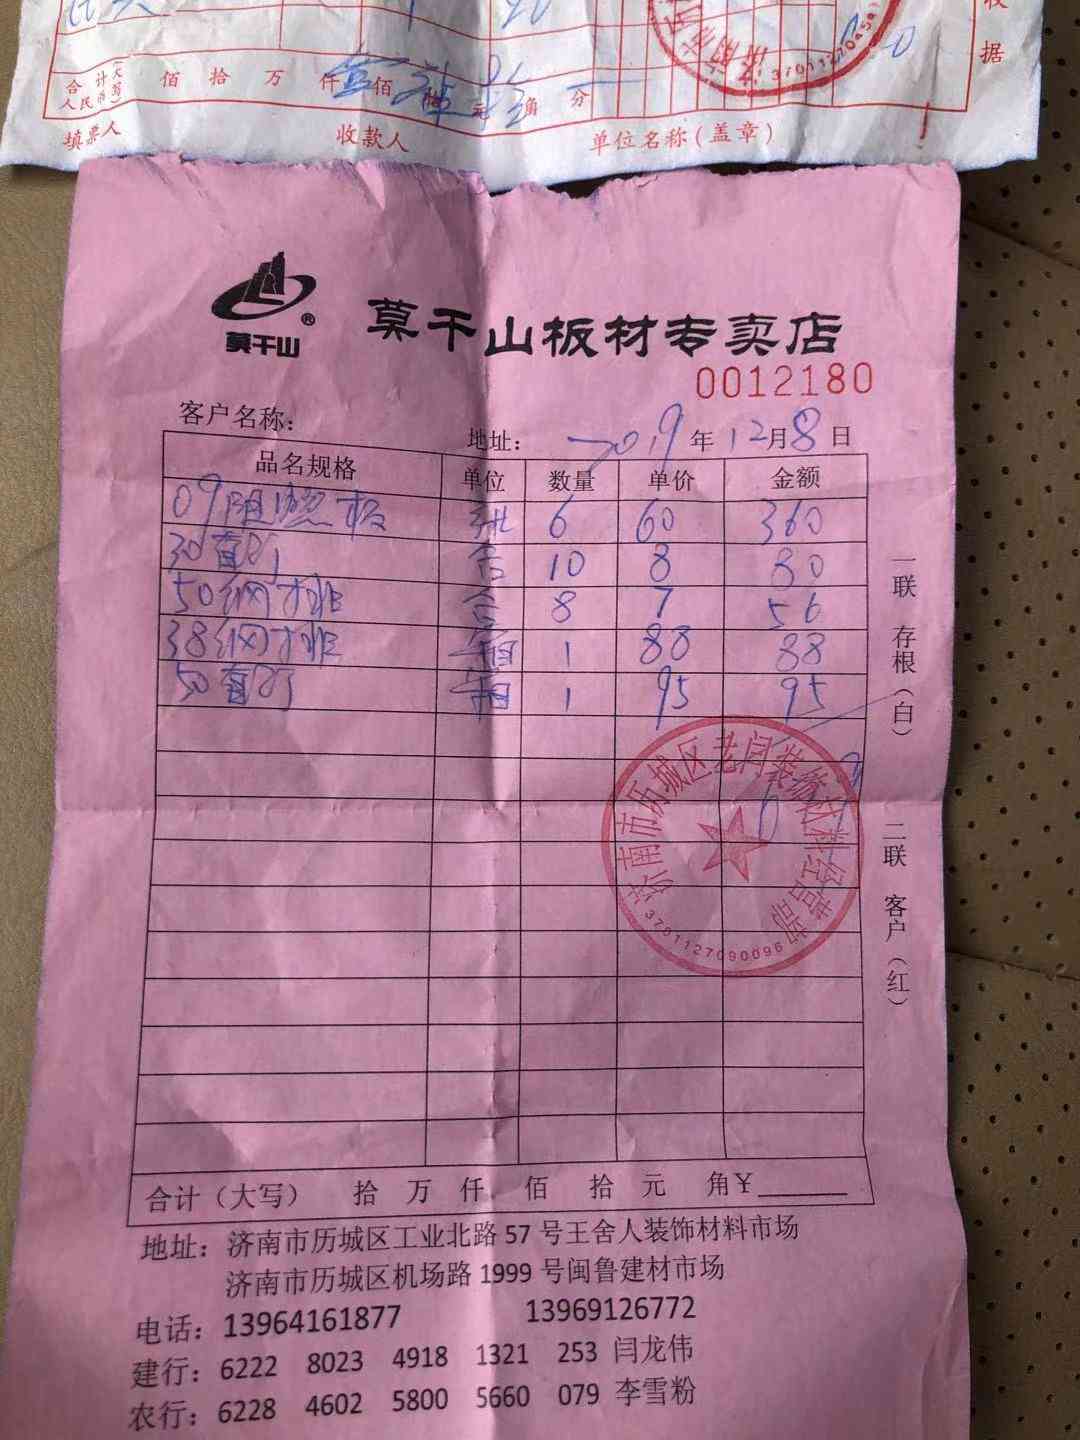 收
据
合计(大写)
人民币
佰 拾 万 仟 壹 佰 拾 元 角 分
370112704591
填票人 收款人 单位名称(盖章)
莫干山®
莫干山板材专卖店
0012180
客户名称:
地址: 2019年12月8日
品名规格 单位 数量 单价 金额
09阻燃板 张 6 60 360
30直钉 合 10 8 80
50钢才班 合 8 7 56
38钢才班 箱 1 88 88
50直钉 箱 1 95 95
济南市历城区老闫装饰材料经营部
3701127090096
一联 存根(白)
二联 客户(红)
合计(大写) 拾 万 仟 佰 拾 元 角¥
地址: 济南市历城区工业北路57号王舍人装饰材料市场
济南市历城区机场路1999号闽鲁建材市场
电话: 13964161877 13969126772
建行: 6222 8023 4918 1321 253 闫龙伟
农行: 6228 4602 5800 5660 079 李雪粉